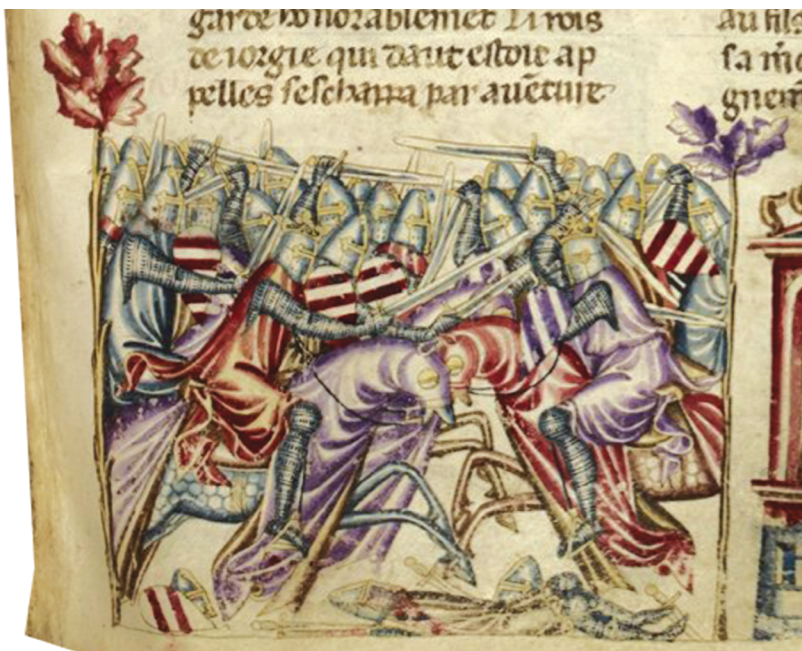 garde honorablemēt Li rois
de iorgie qui daut estoit ap
pelles seschappa par auēture
au fils
sa mo
gnem